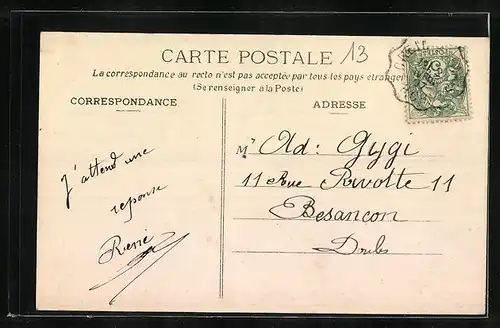 CARTE POSTALE
13
La correspondance au recto n'est pas acceptée par tous les pays étrangers
(Se renseigner à la Poste)
CORRESPONDANCE
ADRESSE
J'attend une
reponse
René
Mr Ad: Gygi
11 Rue Rivotte 11
Besancon
Doubs